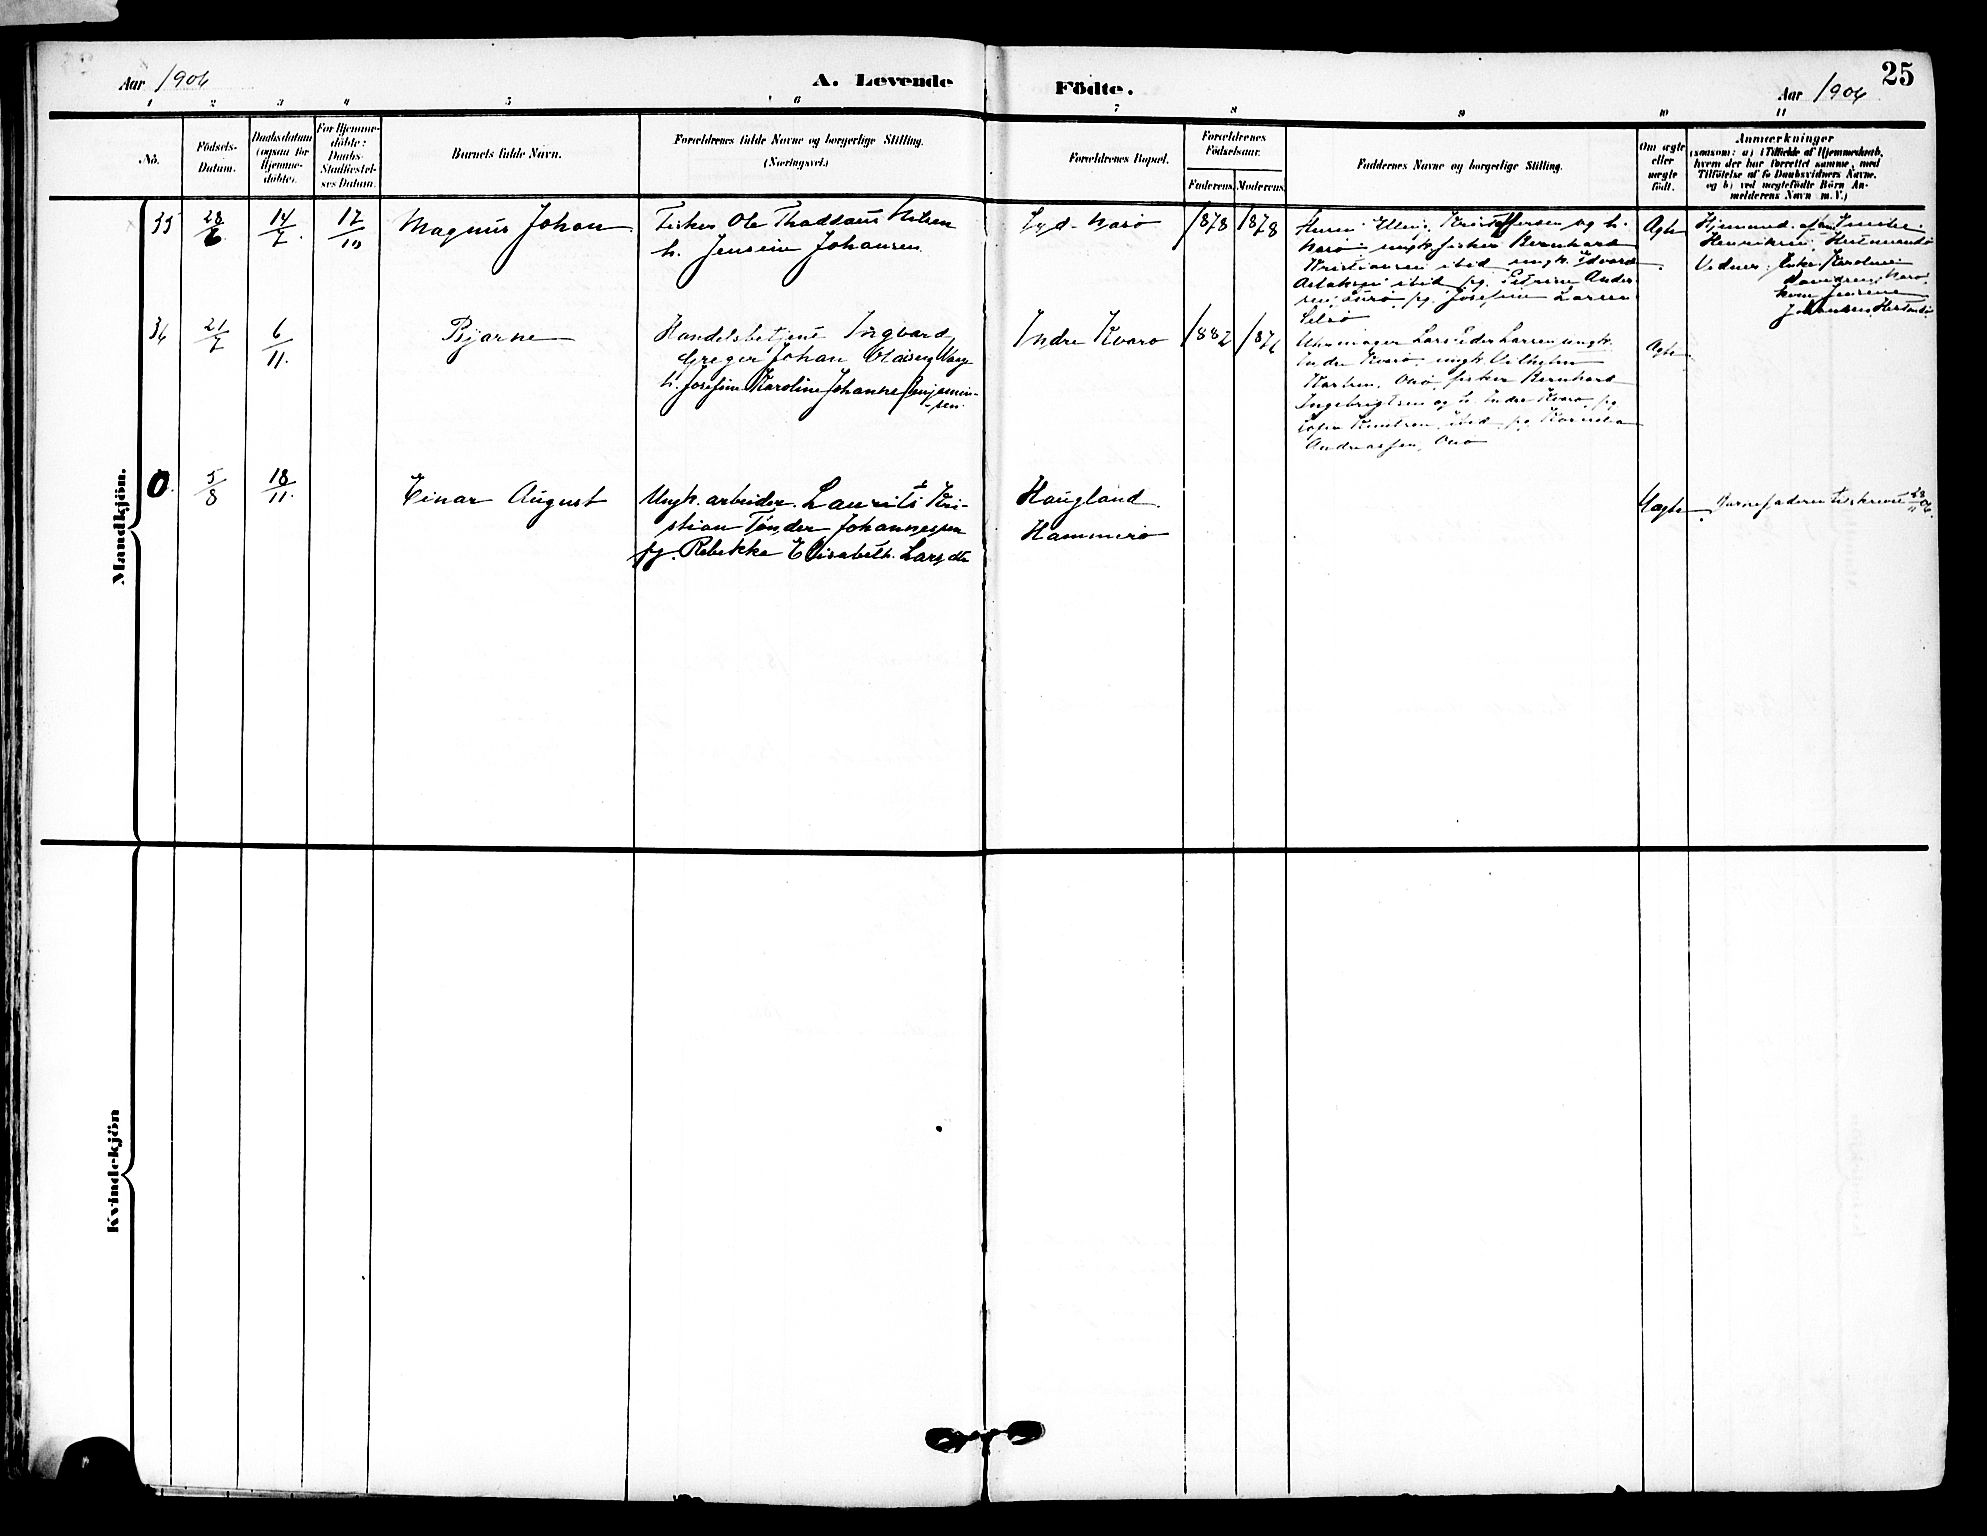 Aar 1906
A. Levende
Födte.
25
Aar 1906
1 2 3 4 5 6 7 8 9 10 11
No.
Födsels-
Datum.
Daabsdatum
(ogsaa for
Hjemme-
döbte).
For Hjemme-
döbte:
Daabs-
Stadfæstel-
ses Datum.
Barnets fulde Navn.
Forældrenes fulde Navne og borgerlige Stilling.
(Næringsvei.)
Forældrenes Bopæl.
Forældrenes
Födselsaar.
Faderens. Moderens.
Faddernes Navne og borgerlige Stilling.
Om ægte
eller
uægte
född.
Anmærkninger
(saasom: a) i Tilfælde af Hjemmedaab,
hvem der har forrettet samme, med
Tilföielse af to Daabsvidners Navne.
og b) ved uægtefödte Börn An-
melderens Navn m. V.)
Mandkjön.
35
28/6
14/7
17/10
Magnus Johan
Fisker Ole Thaddaus Nilsen
h. Jensine Johansen
Nord-Nasö
1878
1878
Kristoffersen og h.
Nasö ungk. fisker Bernhard
Kristiansen ibid ungk. Edvard
ibid pg. Petrine Ander-
sen, Lurö, pg. Josefine Larsen
Selsö
Ægte
Hjemmed. af
Henriksen, Hestmandö
Vidner: Enke Karoline
Davidsen, Nasö
Kone Jensine
Johansen, Hestmdö
36
21/7
6/11
Bjarne
Handelsbetjent Ingvard
Greger Johan Olaisen
h. Josefine Karoline Johanne Benjamin-
sen
Indre Kvarö
1882
1876
Larsen ungk.
Indre Kvarö, ungk. Vilhelm
Karlsen, Onö, fisker Bernhard
Ingebrigtsen og h. Indre Kvarö, pg.
Knutsen, ibid pg. Kornelia
Andreassen, Onö
Ægte
0
5/8
18/11
Einar August
Ungk. arbeider Laurits Kri-
stian Tönder Johannessen
pg. Rebekka Elisabeth Larsdtr
Haugland
Hammerö
Uægte
Barnefaderen tilskrevet 23/11 06.
Kvindekjön